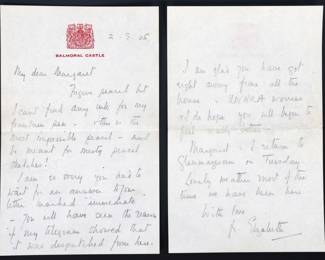 BALMORAL CASTLE
2.9.26
My dear Margaret
Forgive pencil but
I can't find any ink for my
fountain pen - this is the
most impossible pencil - and
be meant for messy pencil
sketches!
I am so sorry you had to
wait for an answer to your
letter marked "immediate"
- You will have seen the reason
if my telegram showed that
it was despatched from here.
I am glad you have got
right away from all the
house worries
feel
Margaret - I return to
on Tuesday.
Lovely weather most of the
time we have been here
With love
Elizabeth